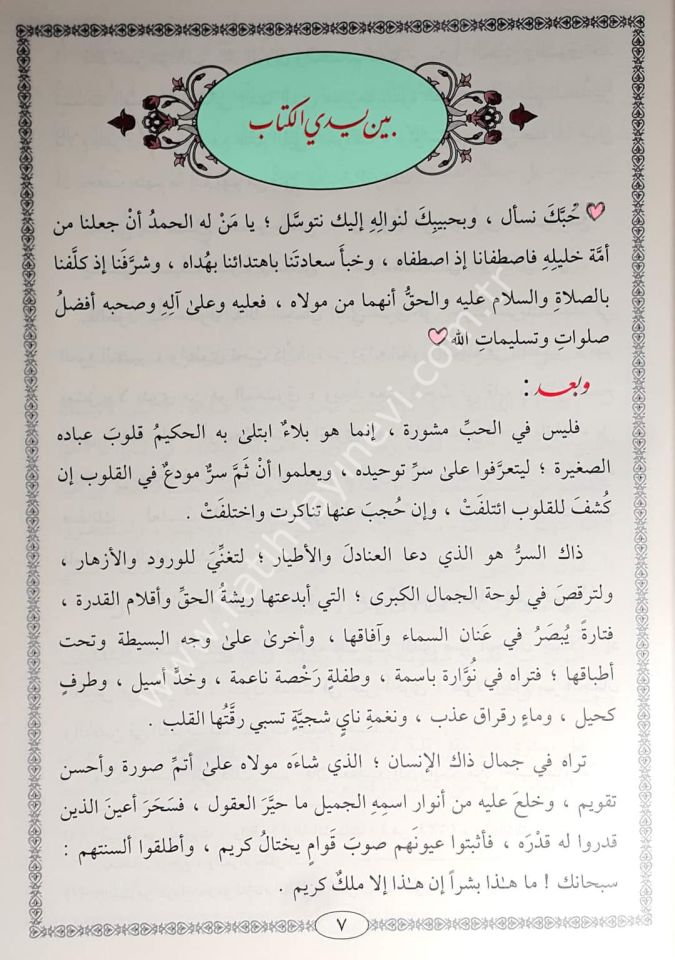 بين يدي الكتاب
حُبَّكَ نسأل ، وبحبيبِكَ لنوالِهِ إليك نتوسَّل ؛ يا مَنْ له الحمدُ أنْ جعلنا من
أمَّة خليلِهِ فاصطفانا إذ اصطفاه ، وخبأ سعادتَنا باهتدائنا بهُداه ، وشرَّفَنا إذ كلَّفنا
بالصلاةِ والسلام عليه والحقُّ أنهما من مولاه ، فعليه وعلىٰ آلِهِ وصحبه أفضلُ
صلواتِ وتسليماتِ الله
وبعد :
فليس في الحبِّ مشورة ، إنما هو بلاءٌ ابتلىٰ به الحكيمُ قلوبَ عباده
الصغيرة ؛ ليتعرَّفوا علىٰ سرِّ توحيده ، ويعلموا أنْ ثَمَّ سرٌّ مودعٌ في القلوب إن
كُشفَ للقلوب ائتلفَتْ ، وإن حُجبَ عنها تناكرت واختلفَتْ .
ذاك السرُّ هو الذي دعا العنادلَ والأطيار ؛ لتغنِّيَ للورود والأزهار ،
ولترقصَ في لوحة الجمال الكبرى ؛ التي أبدعتها ريشةُ الحقِّ وأقلام القدرة ،
فتارةً يُبصَرُ في عَنان السماء وآفاقها ، وأخرىٰ علىٰ وجه البسيطة وتحت
أطباقها ؛ فتراه في نُوَّارة باسمة ، وطفلةٍ رَخْصة ناعمة ، وخدٍّ أسيل ، وطرفٍ
كحيل ، وماءٍ رقراق عذب ، ونغمةِ نايٍ شجيَّةٍ تسبي رقَّتُها القلب .
تراه في جمال ذاك الإنسان ؛ الذي شاءَه مولاه علىٰ أتمِّ صورة وأحسن
تقويم ، وخلعَ عليه من أنوار اسمِهِ الجميل ما حيَّرَ العقول ، فسَحَرَ أعينَ الذين
قدروا له قدْرَه ، فأثبتوا عيونَهم صوبَ قَوامٍ يختالُ كريم ، وأطلقوا ألسنتهم :
سبحانك ! ما هـٰذا بشراً إن هـٰذا إلا ملكٌ كريم .
٧
www.fatihyayinevi.com.tr